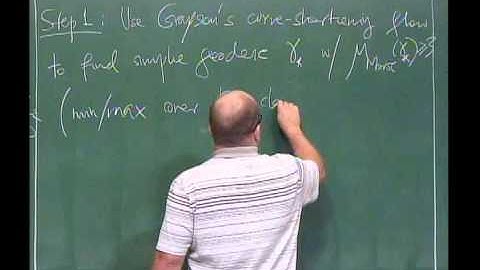 Step 1: Use Grayson's curve-shortening flow
to find simple geodesic γ* w/ μ_Morse(γ*) ≥ 3
(min/max over